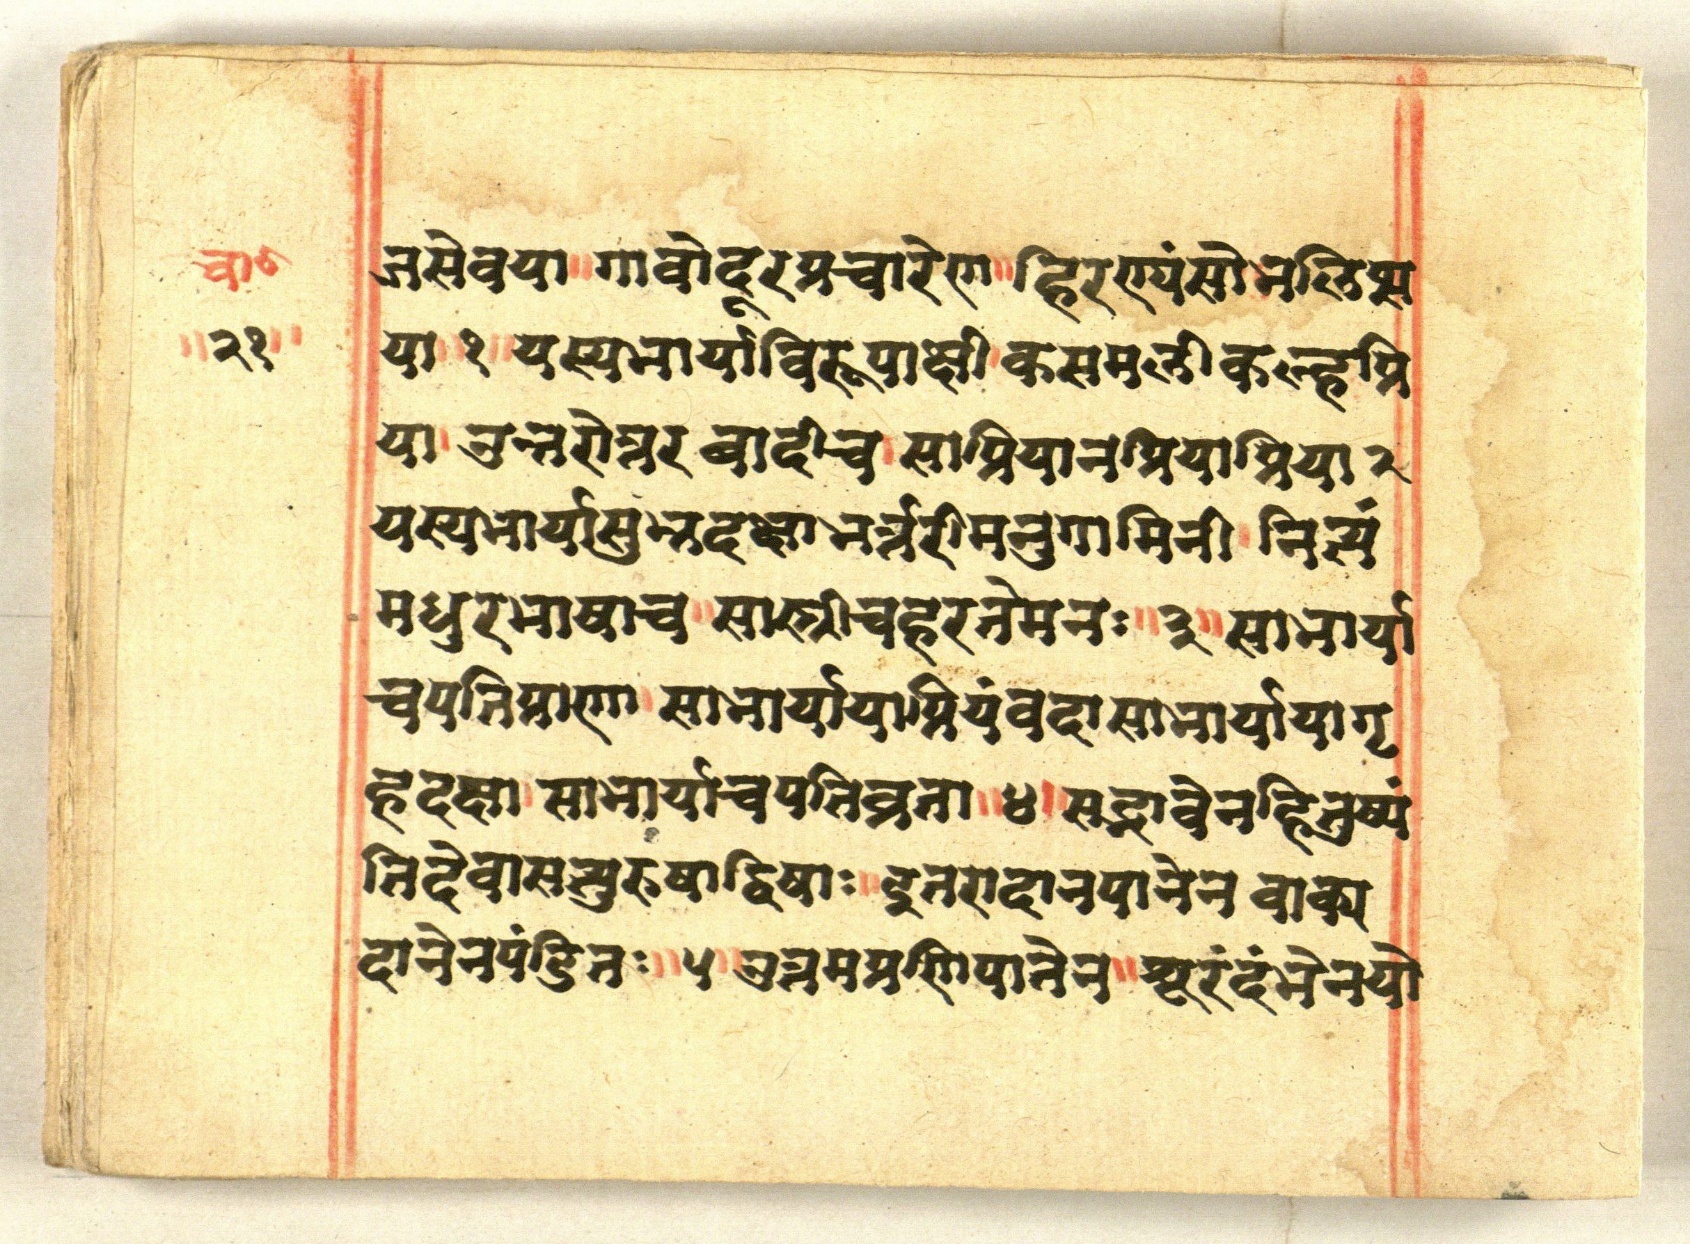 चा॰
॥२१॥
जसेवया ॥ गावोदूरप्रचारेण ॥ हिरण्यंसोनलिप्स
या ॥ १ ॥ यस्यभार्याविरूपाक्षी । कसमली कल्हप्रि
या । उन्तरोत्तर बादीच । साप्रियानप्रियाप्रिया २
यस्यभार्यासुन्तदक्षा भर्त्तारीमनुगामिनी । नित्यं
मधुरभाषाच ॥ सास्त्रीचहरतेमनः ॥ ३ ॥ साभार्या
चपतिप्राणा । साभार्यायाप्रियंवदा साभार्यायागृ
हदक्षा । साभार्याचपतिव्रता ॥ ४ । सद्भावेनहितुष्यं
तिदेवासत्पुरुषाद्विषाः ॥ इतरादानपानेन वाक्य
दानेनपंडितः ॥ ५ ॥ उत्तमप्रणिपातेन ॥ श्पूरंदंभेनयो